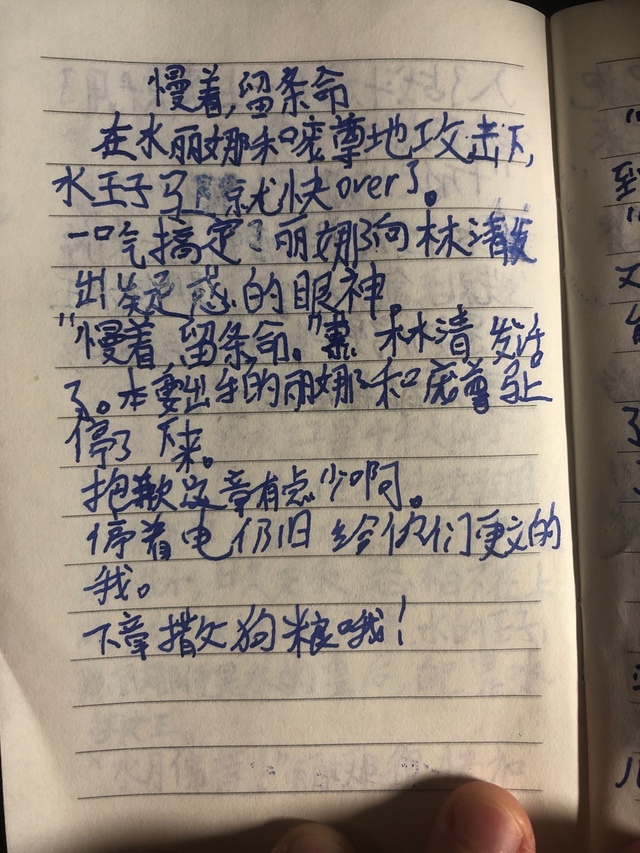 慢着,留条命
在水丽娜和庞尊地攻击下,
水王子马 就快over了。
一口气搞定了丽娜向林清发
出疑惑的眼神
"慢着 留条命。" 林清 发话
了。本要出手的丽娜和庞尊马上
停了 下来。
抱歉这章有点少啊。
停着电仍旧给你们更文的
我。
下章撒狗粮哦!